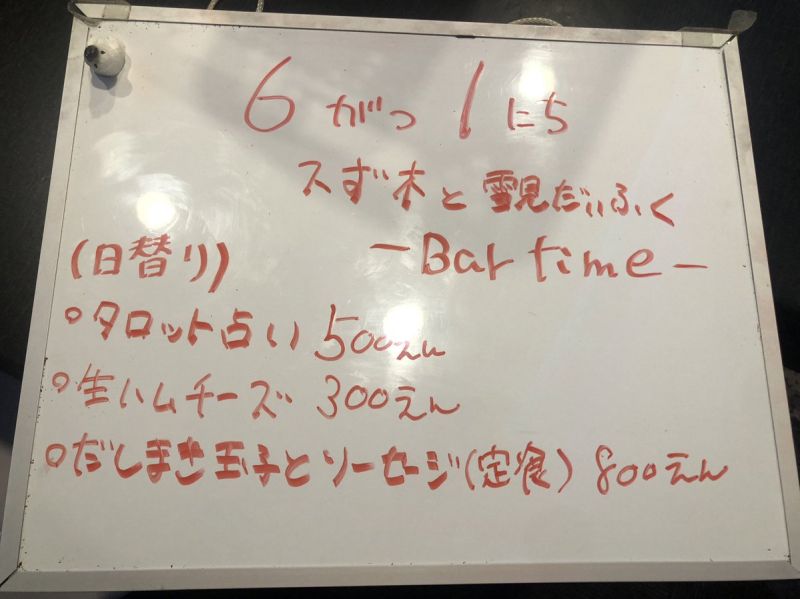 6がつ1にち
スず木と雪見だいふく
(日替り)
ーBar timeー
○タロット占い 500えん
○生ハムチーズ 300えん
○だしまき玉子とソーセージ(定食) 800えん